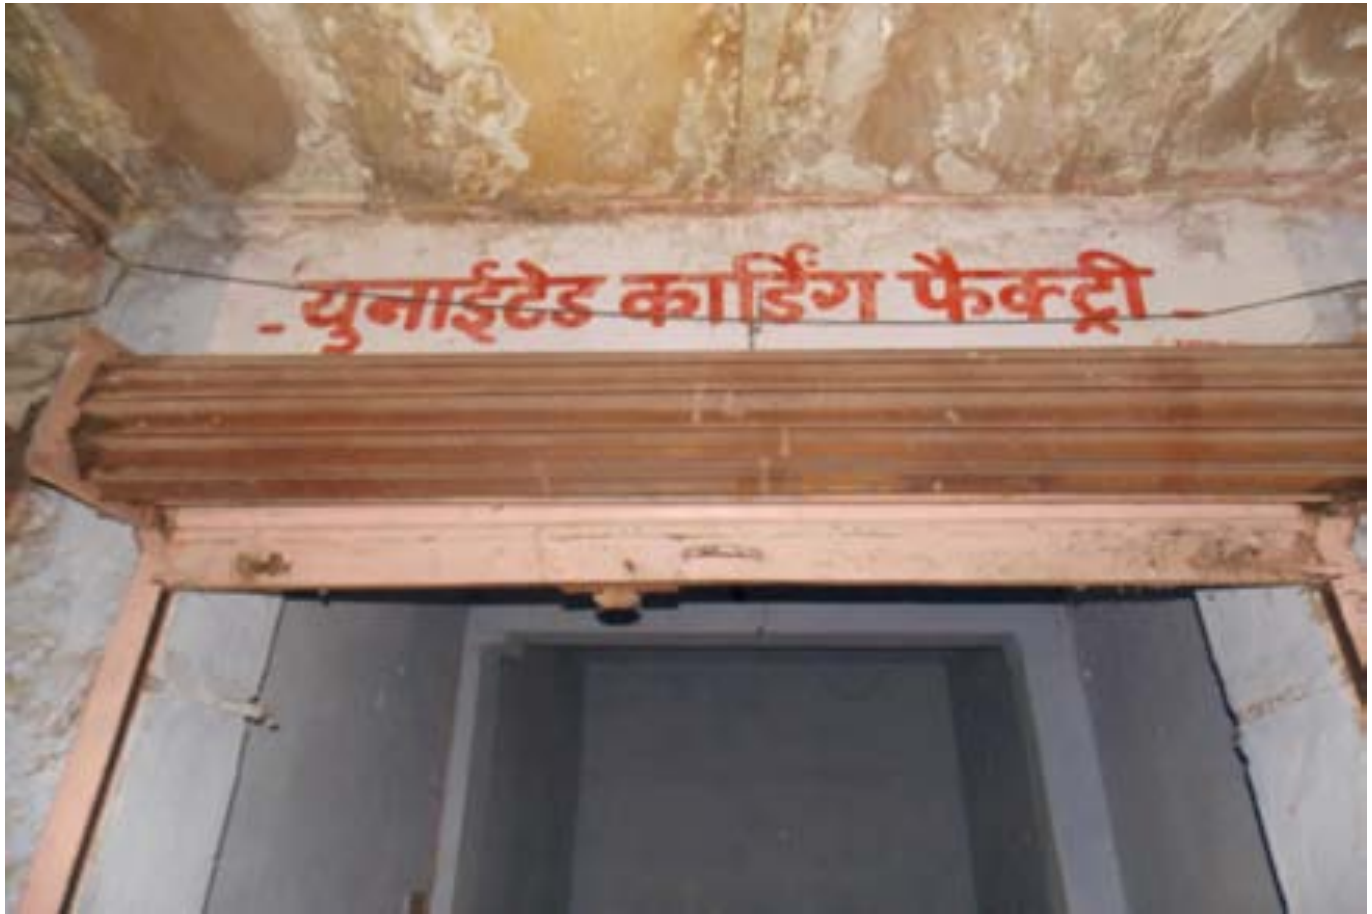 - युनाईटेड कार्डिंग फैक्ट्री -